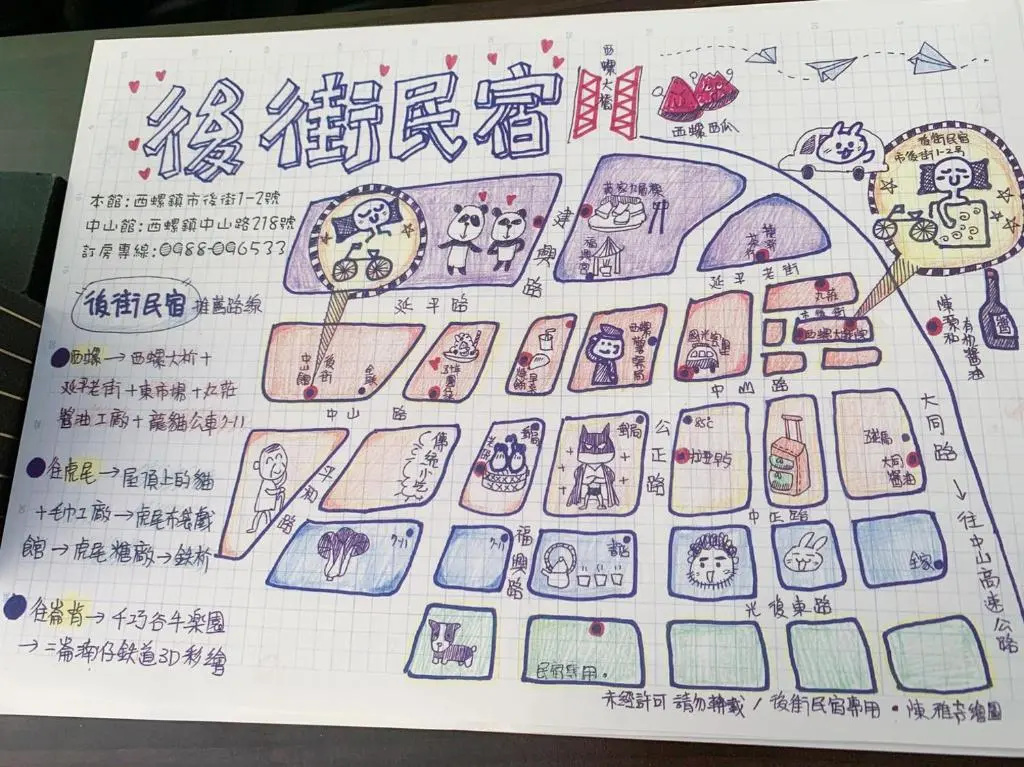 後街民宿
本館:西螺鎮市後街1-2號
中山館:西螺鎮中山路218號
訂房專線:0988-096533
後街民宿 推薦路線
西螺→西螺大桥+
延平老街+東市場+丸莊
醬油工廠+龍貓公車7-11
往虎尾→屋頂上的貓
+毛巾工廠→虎尾布袋戲
館→虎尾糖廠→鉄桥
往崙背→千巧谷牛楽園
西螺大橋
西螺西瓜
後街民宿
市後街1-2号
建興路
福興宮
延平路
延平老街
丸莊
西螺大
陳源和
有机醬油
中山館
後街
全家
西螺警察局
國光客運
中山路
中山路
大同路
平和路
傳統小吃
郵局
公正路
85C
郵局
大同醬油
中正路
7-11
7-11
福興路
全家
光復東路
往中山高速公路
民宿專用
未經許可 請勿轉載/後街民宿專用・陳雅芳繪圖